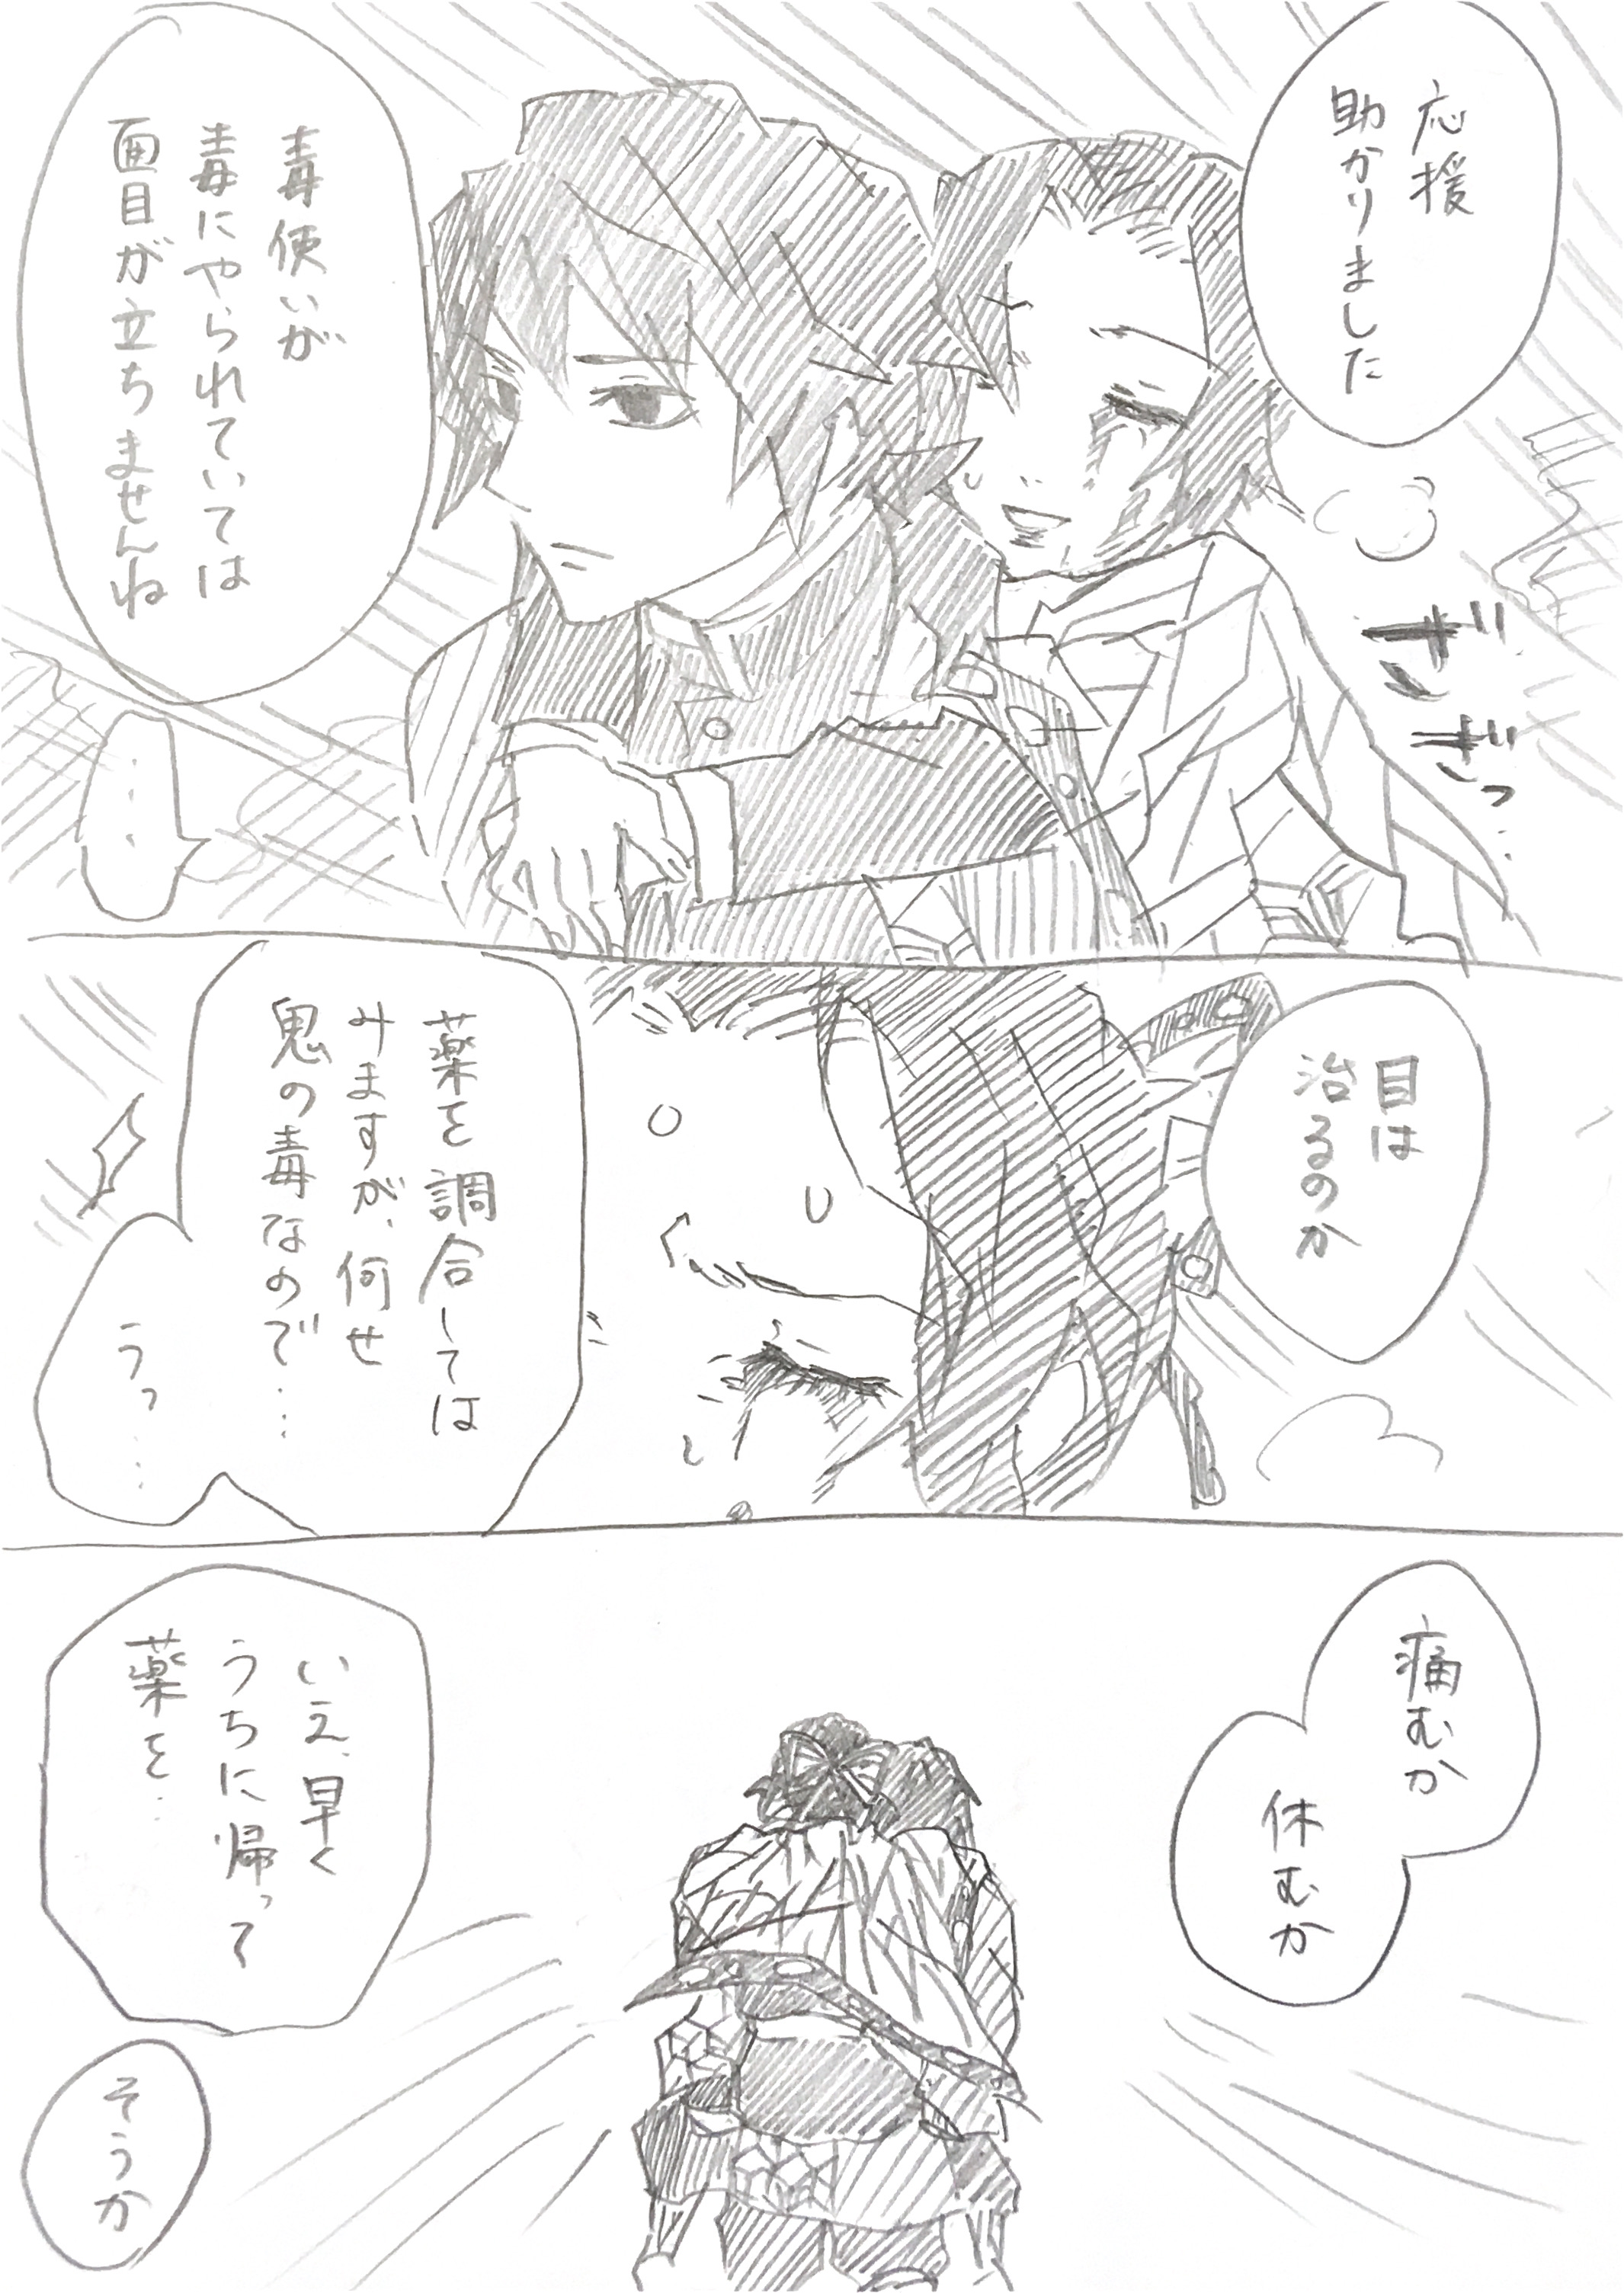 応援
助かりました
毒使いが
毒にやられていては
面目が立ちませんね
ぎ
ぎっ…
…
目は
治るのか
薬を調合しては
みますが、何せ
鬼の毒なので…
うっ…
痛むか
休むか
いえ、早く
うちに帰って
薬を…
そうか